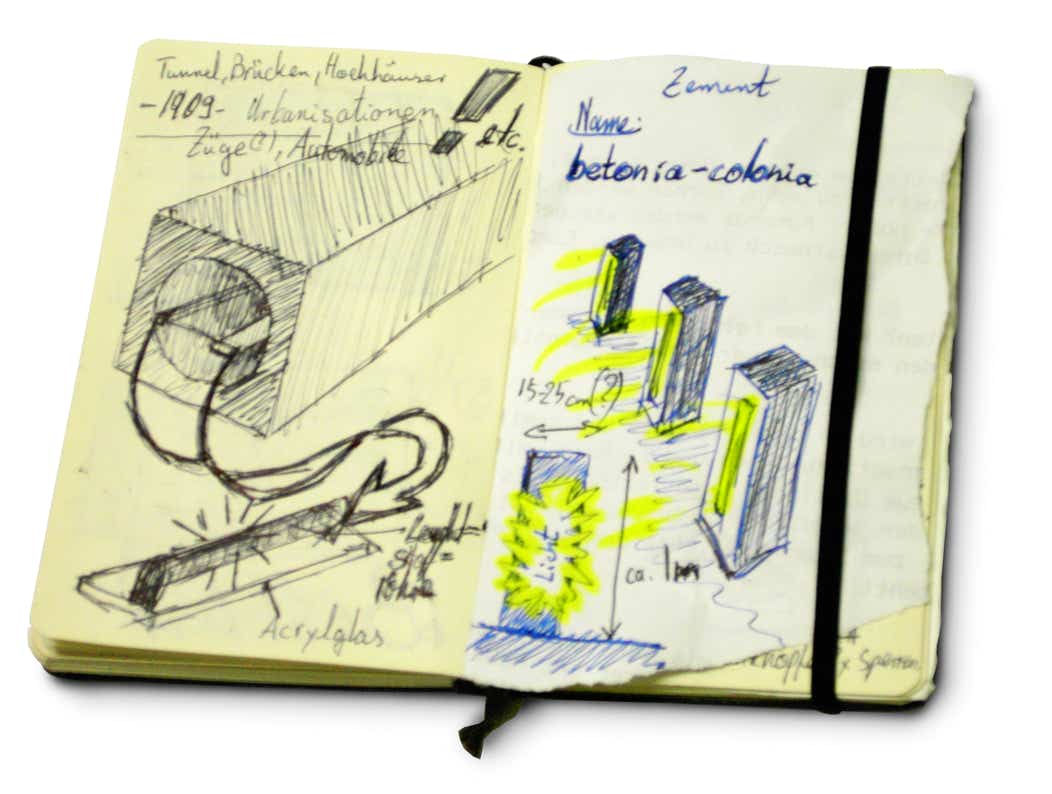 Tunnel, Brücken, Hochhäuser
-1909- Urbanisationen
Züge(?), Automobile etc.
Leucht-
röhre
Acrylglas
Zement
Name:
betonia-colonia
15-25cm(?)
Licht
ca. 1m
x Sperren